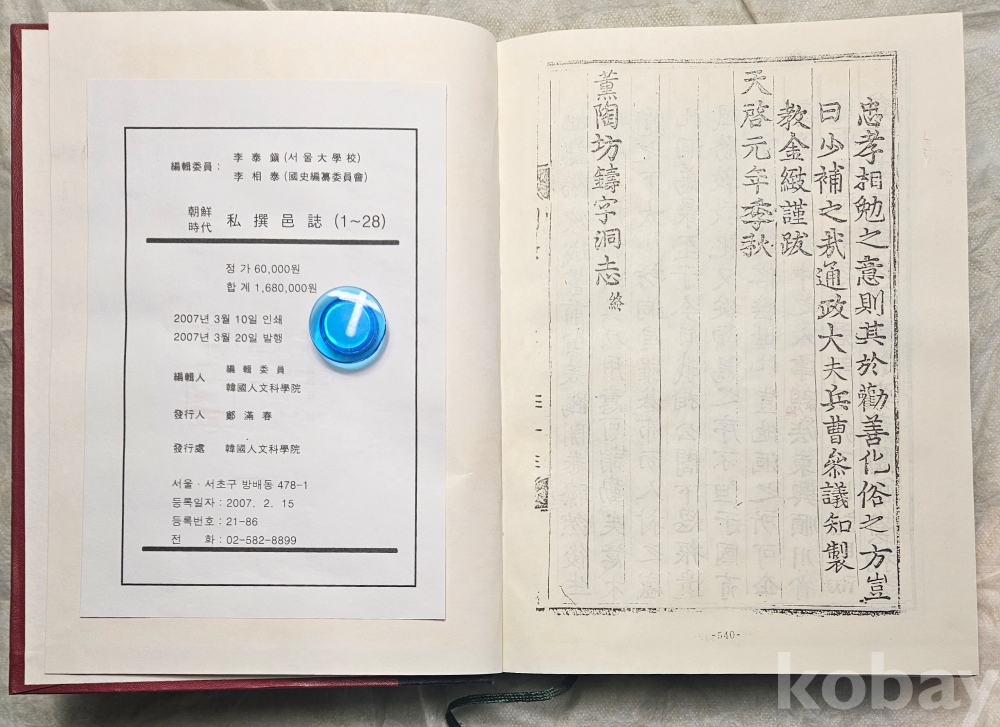 編輯委員 : 李 泰 鎭 (서 울 大 學 校)
李 相 泰 (國史編纂委員會)
朝鮮時代 私 撰 邑 誌 (1~28)
정 가 60,000원
합 계 1,680,000원
2007년 3월 10일 인쇄
2007년 3월 20일 발행
編輯人 編 輯 委 員
韓國人文科學院
發行人 鄭 滿 春
發行處 韓國人文科學院
서울 · 서초구 방배동 478-1
등록일자 : 2007. 2. 15
등록번호 : 21-86
전 화 : 02-582-8899
忠孝相勉之意則其於勸善化俗之方豈
曰少補之哉通政大夫兵曹參議知製
敎金緻謹跋
天啓元年季秋
薰陶坊鑄字洞志 終
-540-
kobay